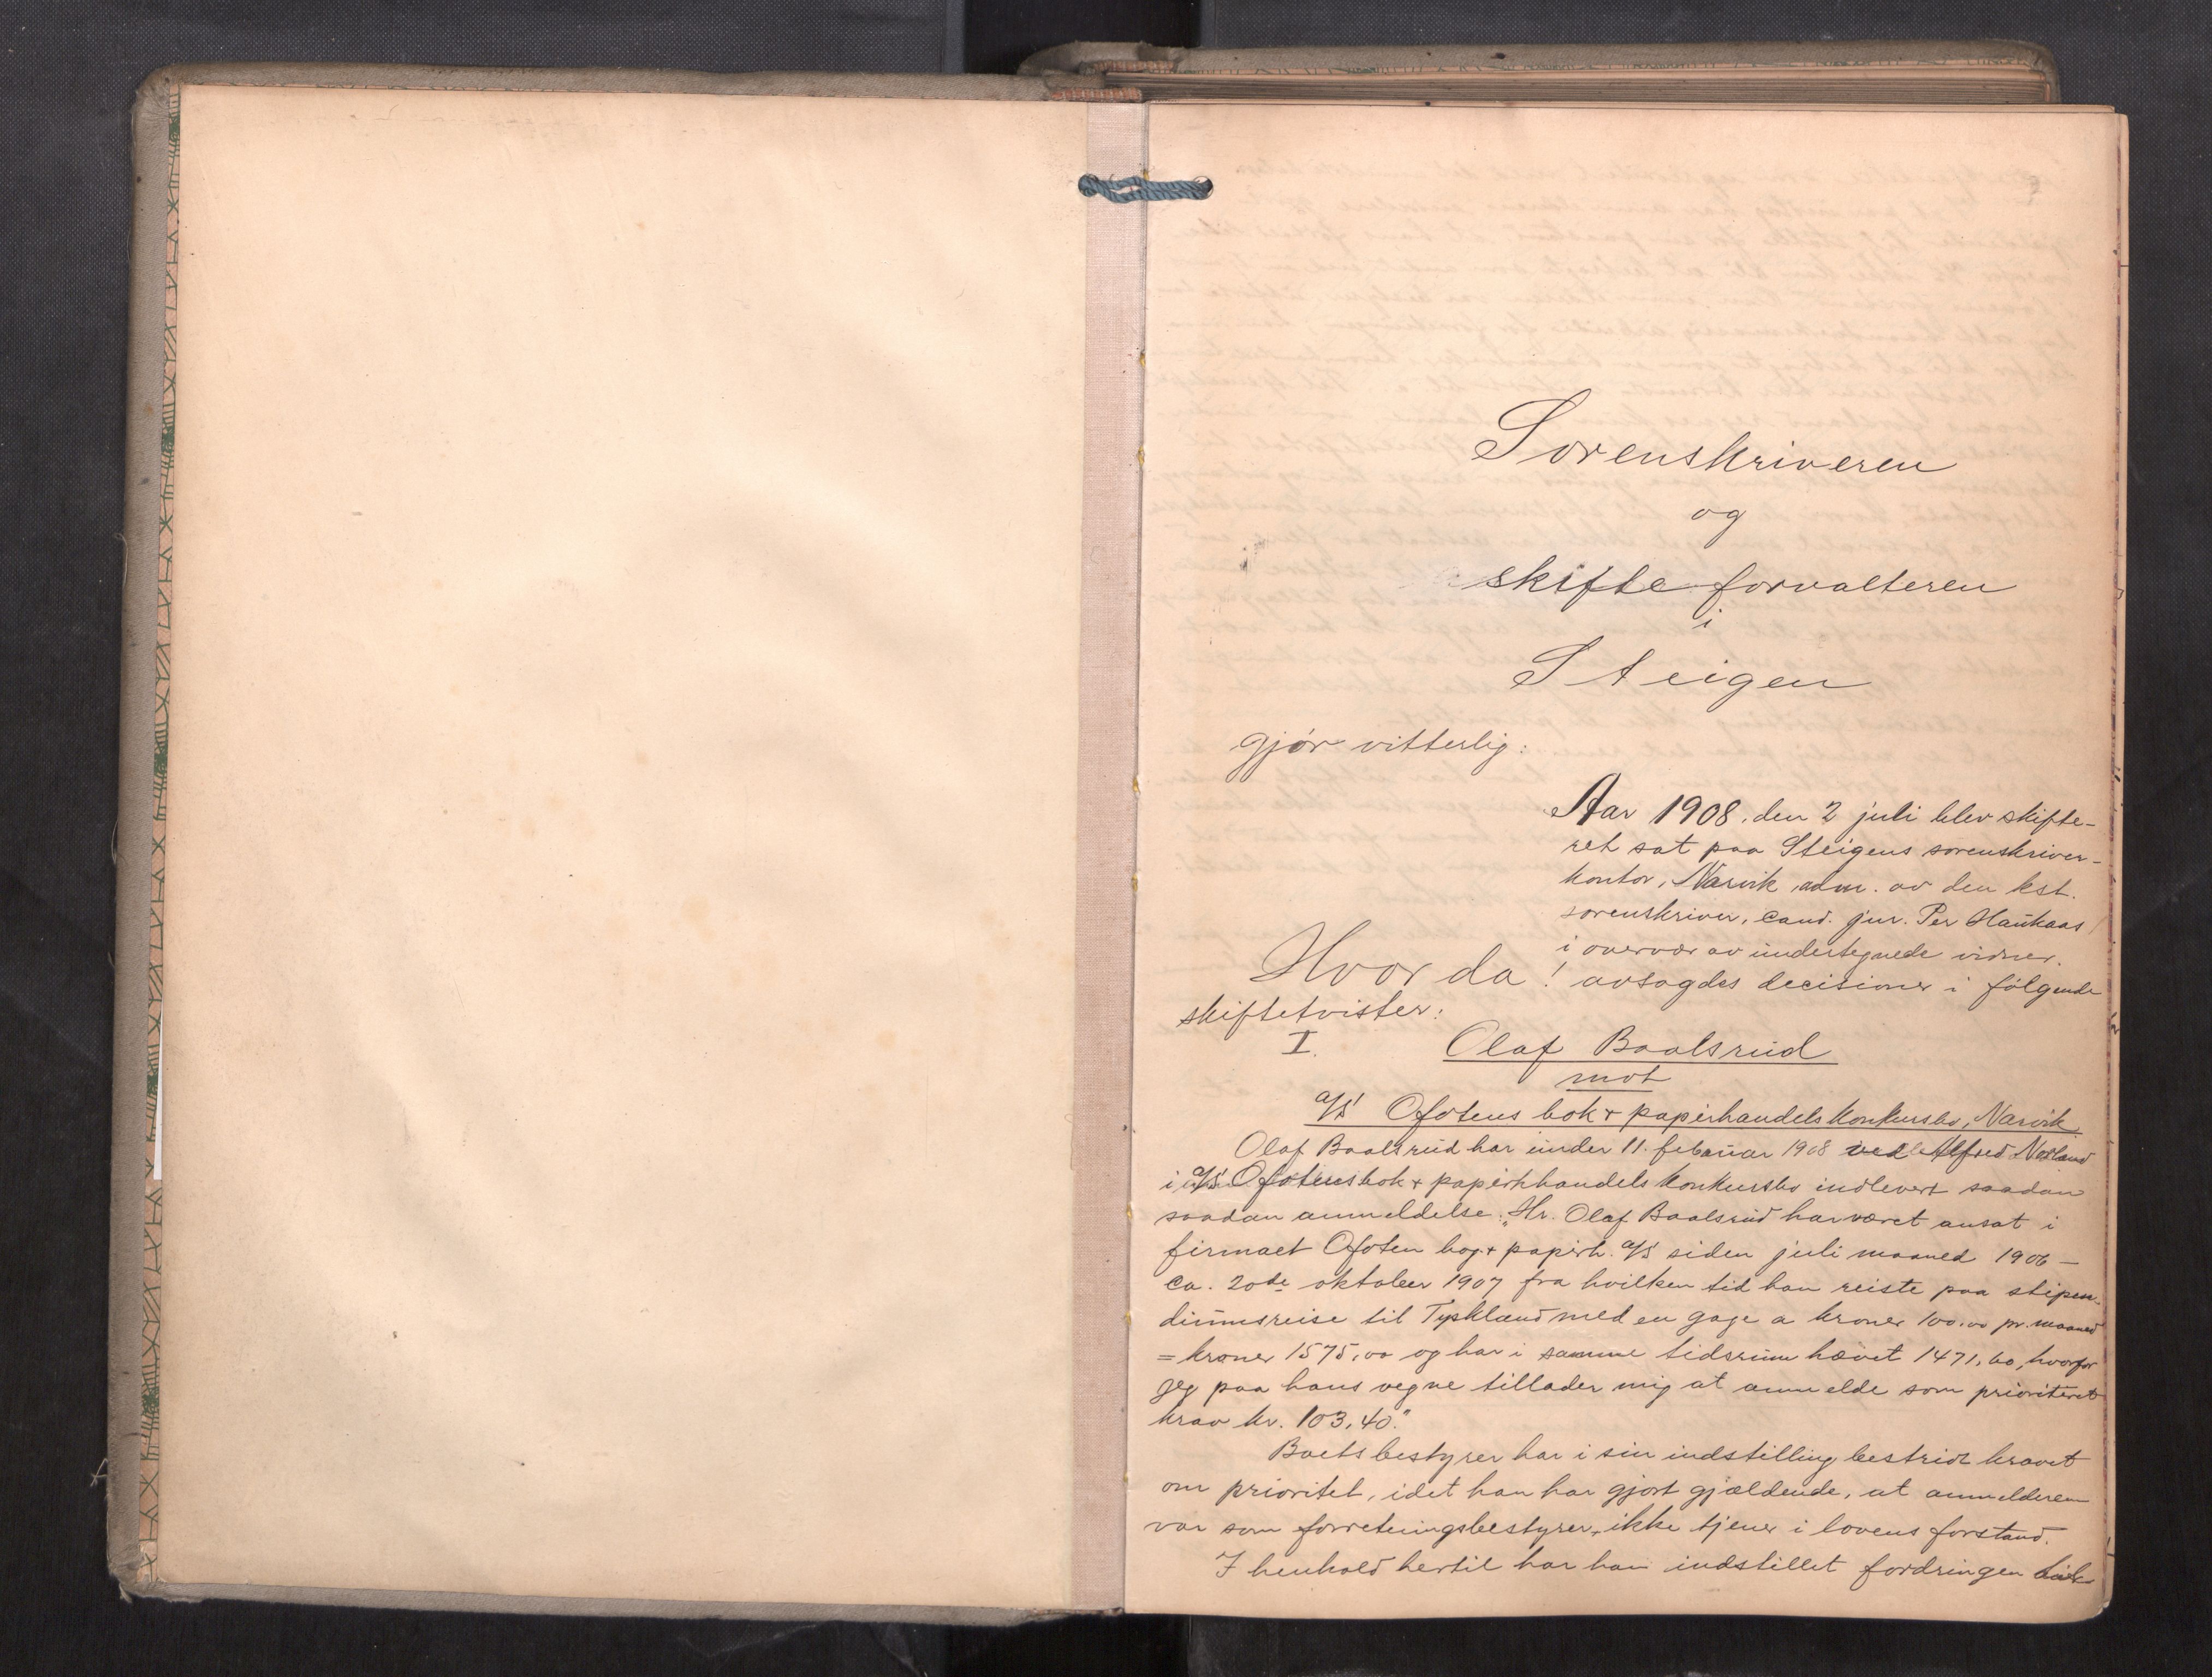 Sorenskriveren
og
skifteforvalteren
i
Steigen
gjör vitterlig:
Aar 1908, den 2 juli blev skifte-
ret sat paa Steigens sorenskriver-
kontor, Narvik, adm. av den kst.
sorenskriver, cand. jur. Per Haukaas
i overvær av undertegnede vidner.
Hvor da! avsagdes decisioner i følgende
skiftetvister:
I. Olaf Baalsrud
mot
a/s Ofotens bok & papirhandels konkursbo, Narvik
Olaf Baalsrud har under 11. februar 1908 ved Alfred
i a/s Ofotens bok & papirhandels konkursbo indlevert saadan
saadan anmeldelse: "Hr. Olaf Baalsrud har været ansat i
firmaet Ofoten bog & papirh. a/s siden juli maaned 1906 –
ca. 20de oktober 1907 fra hvilken tid han reiste paa stipen-
diumsreise til Tyskland med en gage a kroner 100,00 pr. maaned
= kroner 1575,00 og har i samme tidsrum hævet 1471,60, hvorfor
jeg paa hans vegne tillader mig at anmelde som prioritert
krav kr. 103,40."
Boets bestyrer har i sin indstilling bestridt kravet
om prioritet, idet han har gjort gjældende, at anmelderen
var som forretningsbestyrer, ikke tjener i lovens forstand.
I henhold hertil har han indstillet fordringen